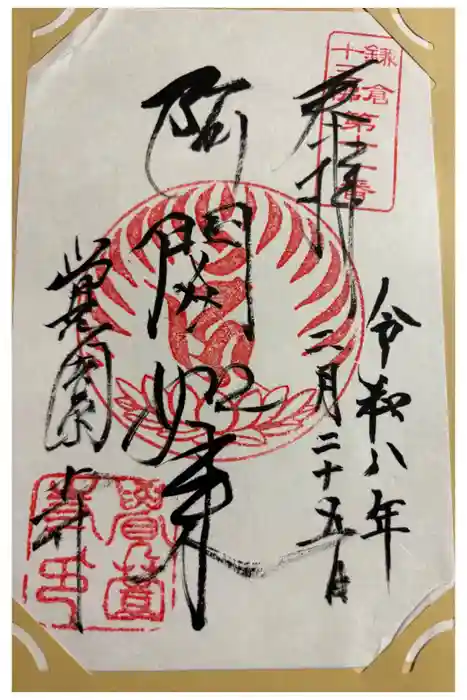 鎌倉
十三佛第十一番
奉拝
令和八年
二月二十五日
阿閦如来
覚園寺